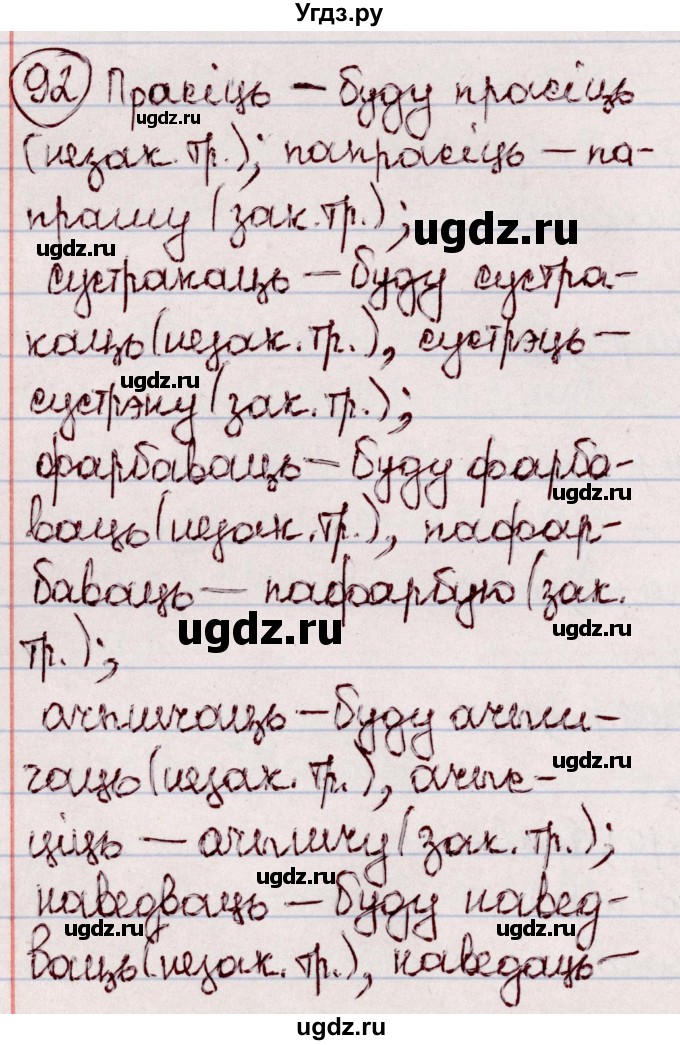 Угдз.ру
92 Прасіць – буду прасіць
(незак. тр.); папрасіць – па-
прашу (зак. тр.);
сустракаць – буду сустра-
каць (незак. тр.), сустрэць –
сустрэну (зак. тр.);
фарбаваць – буду фарба-
ваць (незак. тр.), пафар-
баваць – пафарбую (зак.
тр.);
ачышчаць – буду ачыш-
чаць (незак. тр.), ачыс-
ціць – ачышчу (зак. тр.);
наведваць – буду навед-
ваць (незак. тр.), наведаць –
ugdz.ru
ugdz.ru
ugdz.ru
ugdz.ru
ugdz.ru
ugdz.ru
ugdz.ru
ugdz.ru
ugdz.ru
ugdz.ru
ugdz.ru
ugdz.ru